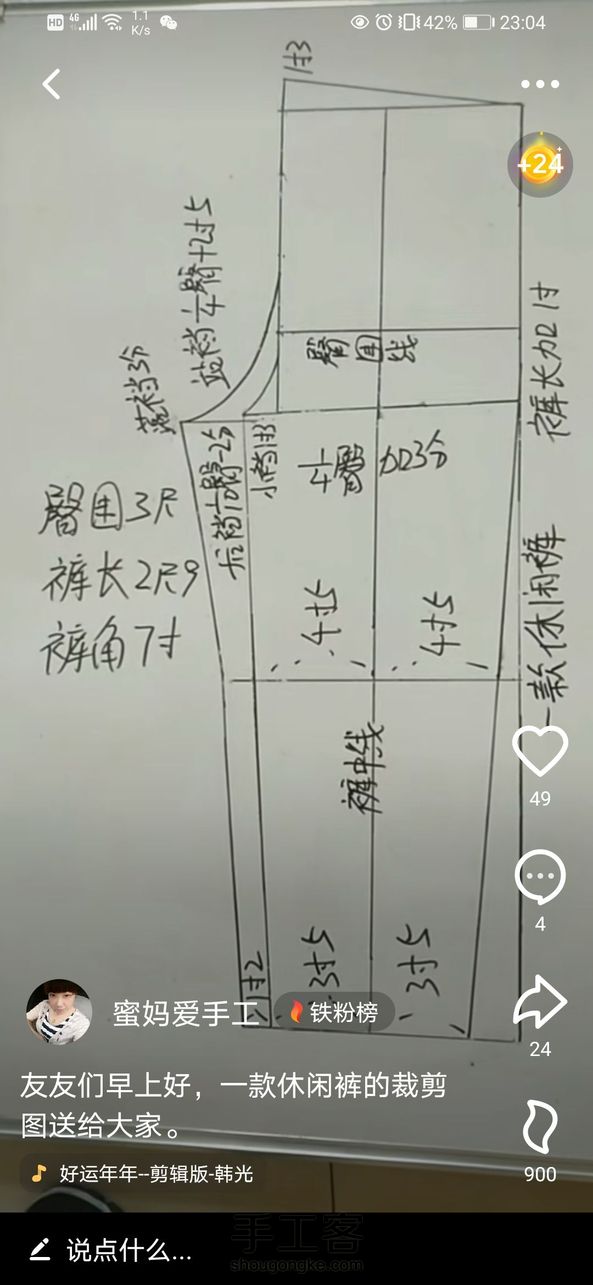 HD 4G 1.1 K/s 42% 23:04
+24
1寸3
落裆3分
站裆¼臀+2寸5
臀围线
裤长加2寸
后裆⅒臀-2分
小裆1寸3
¼臀加3分
臀围3尺
裤长2尺9
裤角7寸
4寸5
4寸5
一款休闲裤
裤中线
49
4
3寸5
3寸5
1寸2
蜜妈爱手工
铁粉榜
24
友友们早上好，一款休闲裤的裁剪
图送给大家。
好运年年--剪辑版-韩光
900
说点什么...
手工客
shougongke.com